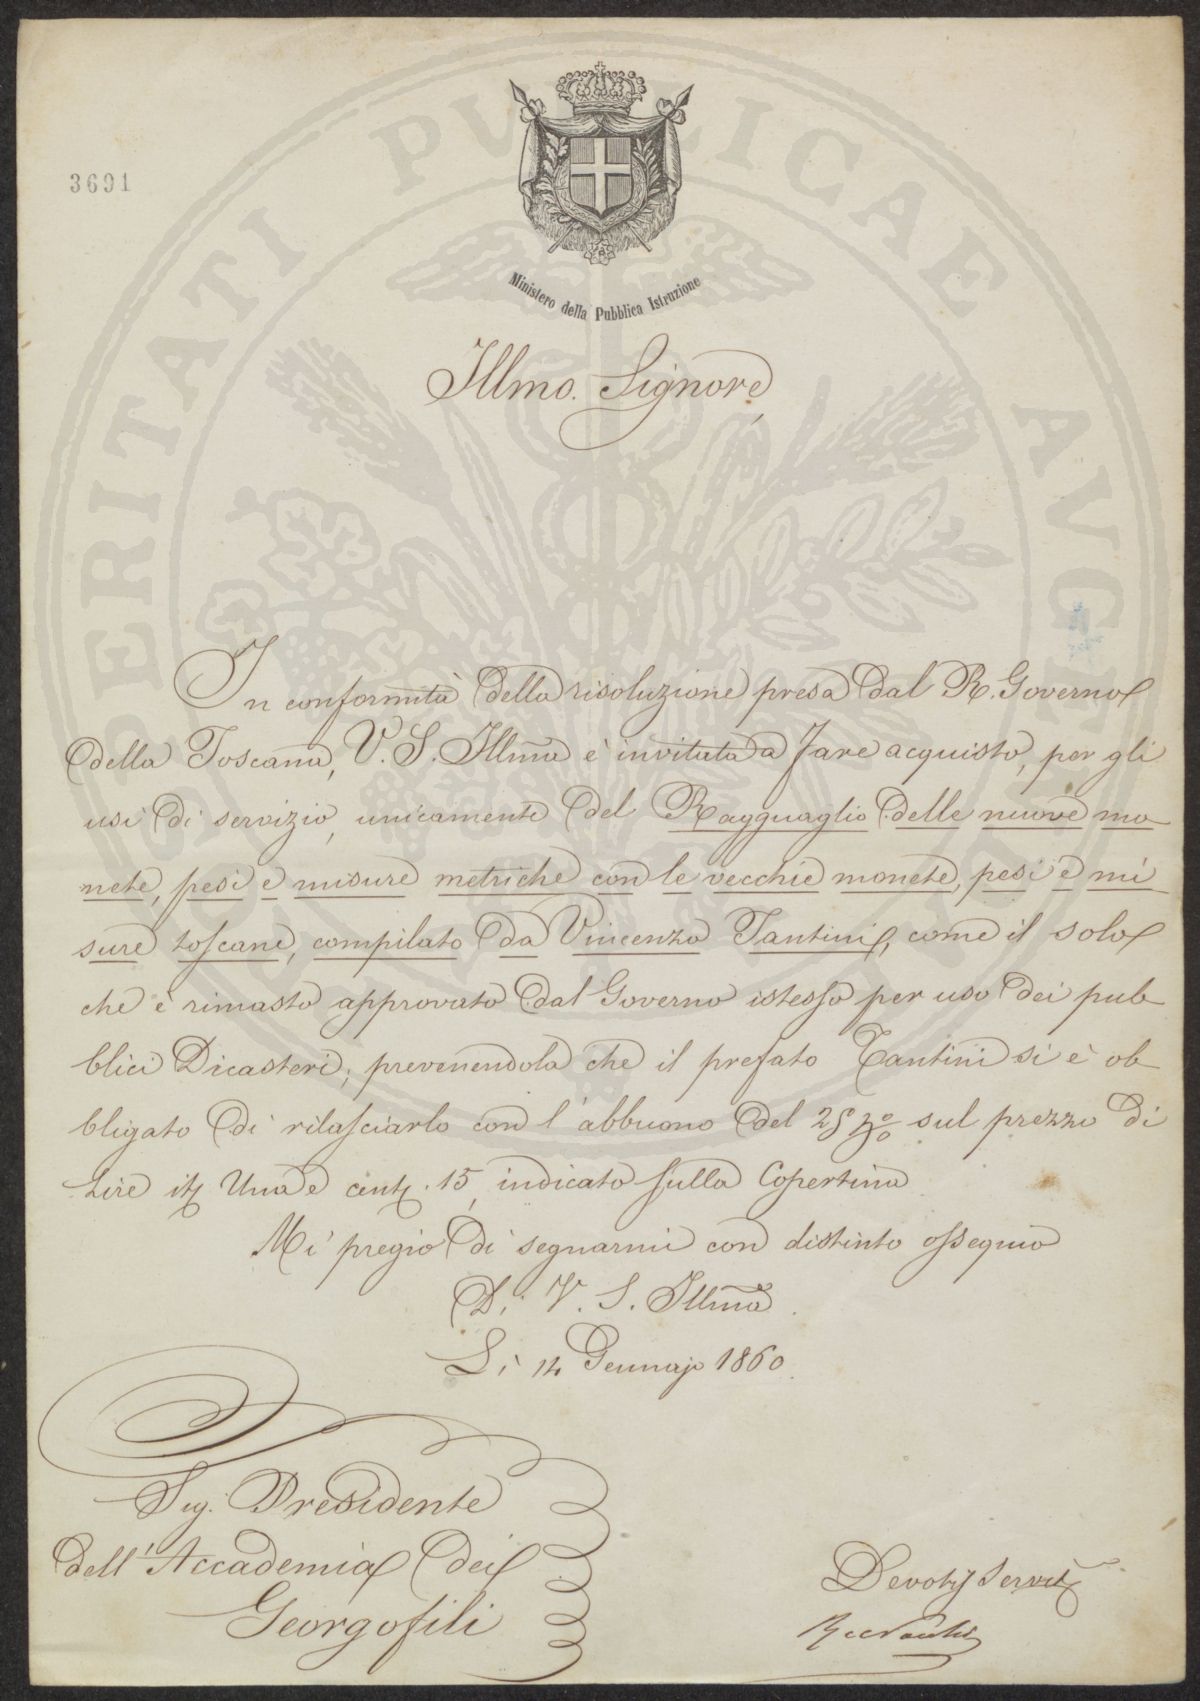 PROSPERITATI PUBLICAE AVGENDAE
3691
Ministero della Pubblica Istruzione
Illmo. Signore
In conformità della risoluzione presa dal R. Governo
della Toscana, V. S. Illma è invitata a fare acquisto, per gli
usi di servizio, unicamente del Ragguaglio delle nuove mo-
nete, pesi e misure metriche con le vecchie monete, pesi e mi-
sure toscane, compilato da Vincenzo Tantini, come il solo
che è rimasto approvato dal Governo istesso per uso dei pub-
blici Dicasteri; prevenendola che il prefato Tantini si è ob-
bligato di rilasciarlo con l'abbuono del 25 p% sul prezzo di
Lire it. Una e cent. 15, indicato sulla Copertina
Mi pregio di segnarmi con distinto ossequio
Di V. S. Illma.
Li 14 Gennajo 1860.
Sig. Presidente
dell'Accademia dei
Georgofili
Devotis Servit